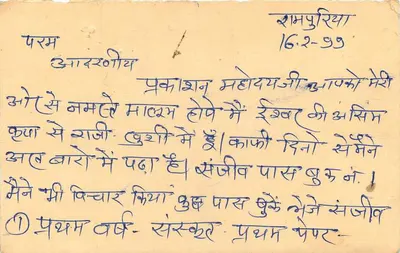 रामपुरिया
16-2-99
परम
आदरणीय
प्रकाशन महोदयजी आपको मेरी
ओर से नमस्ते मालूम होवे मैं ईश्वर की असिम
कृपा से राजी खुशी में हूँ। काफी दिनो से मैंने
अखबारो में पढा है। संजीव पास बुक नं. 1
मैने भी विचार किया कुछ पास बुकें भेजे संजीव
① प्रथम वर्ष - संस्कृत प्रथम पेपर -